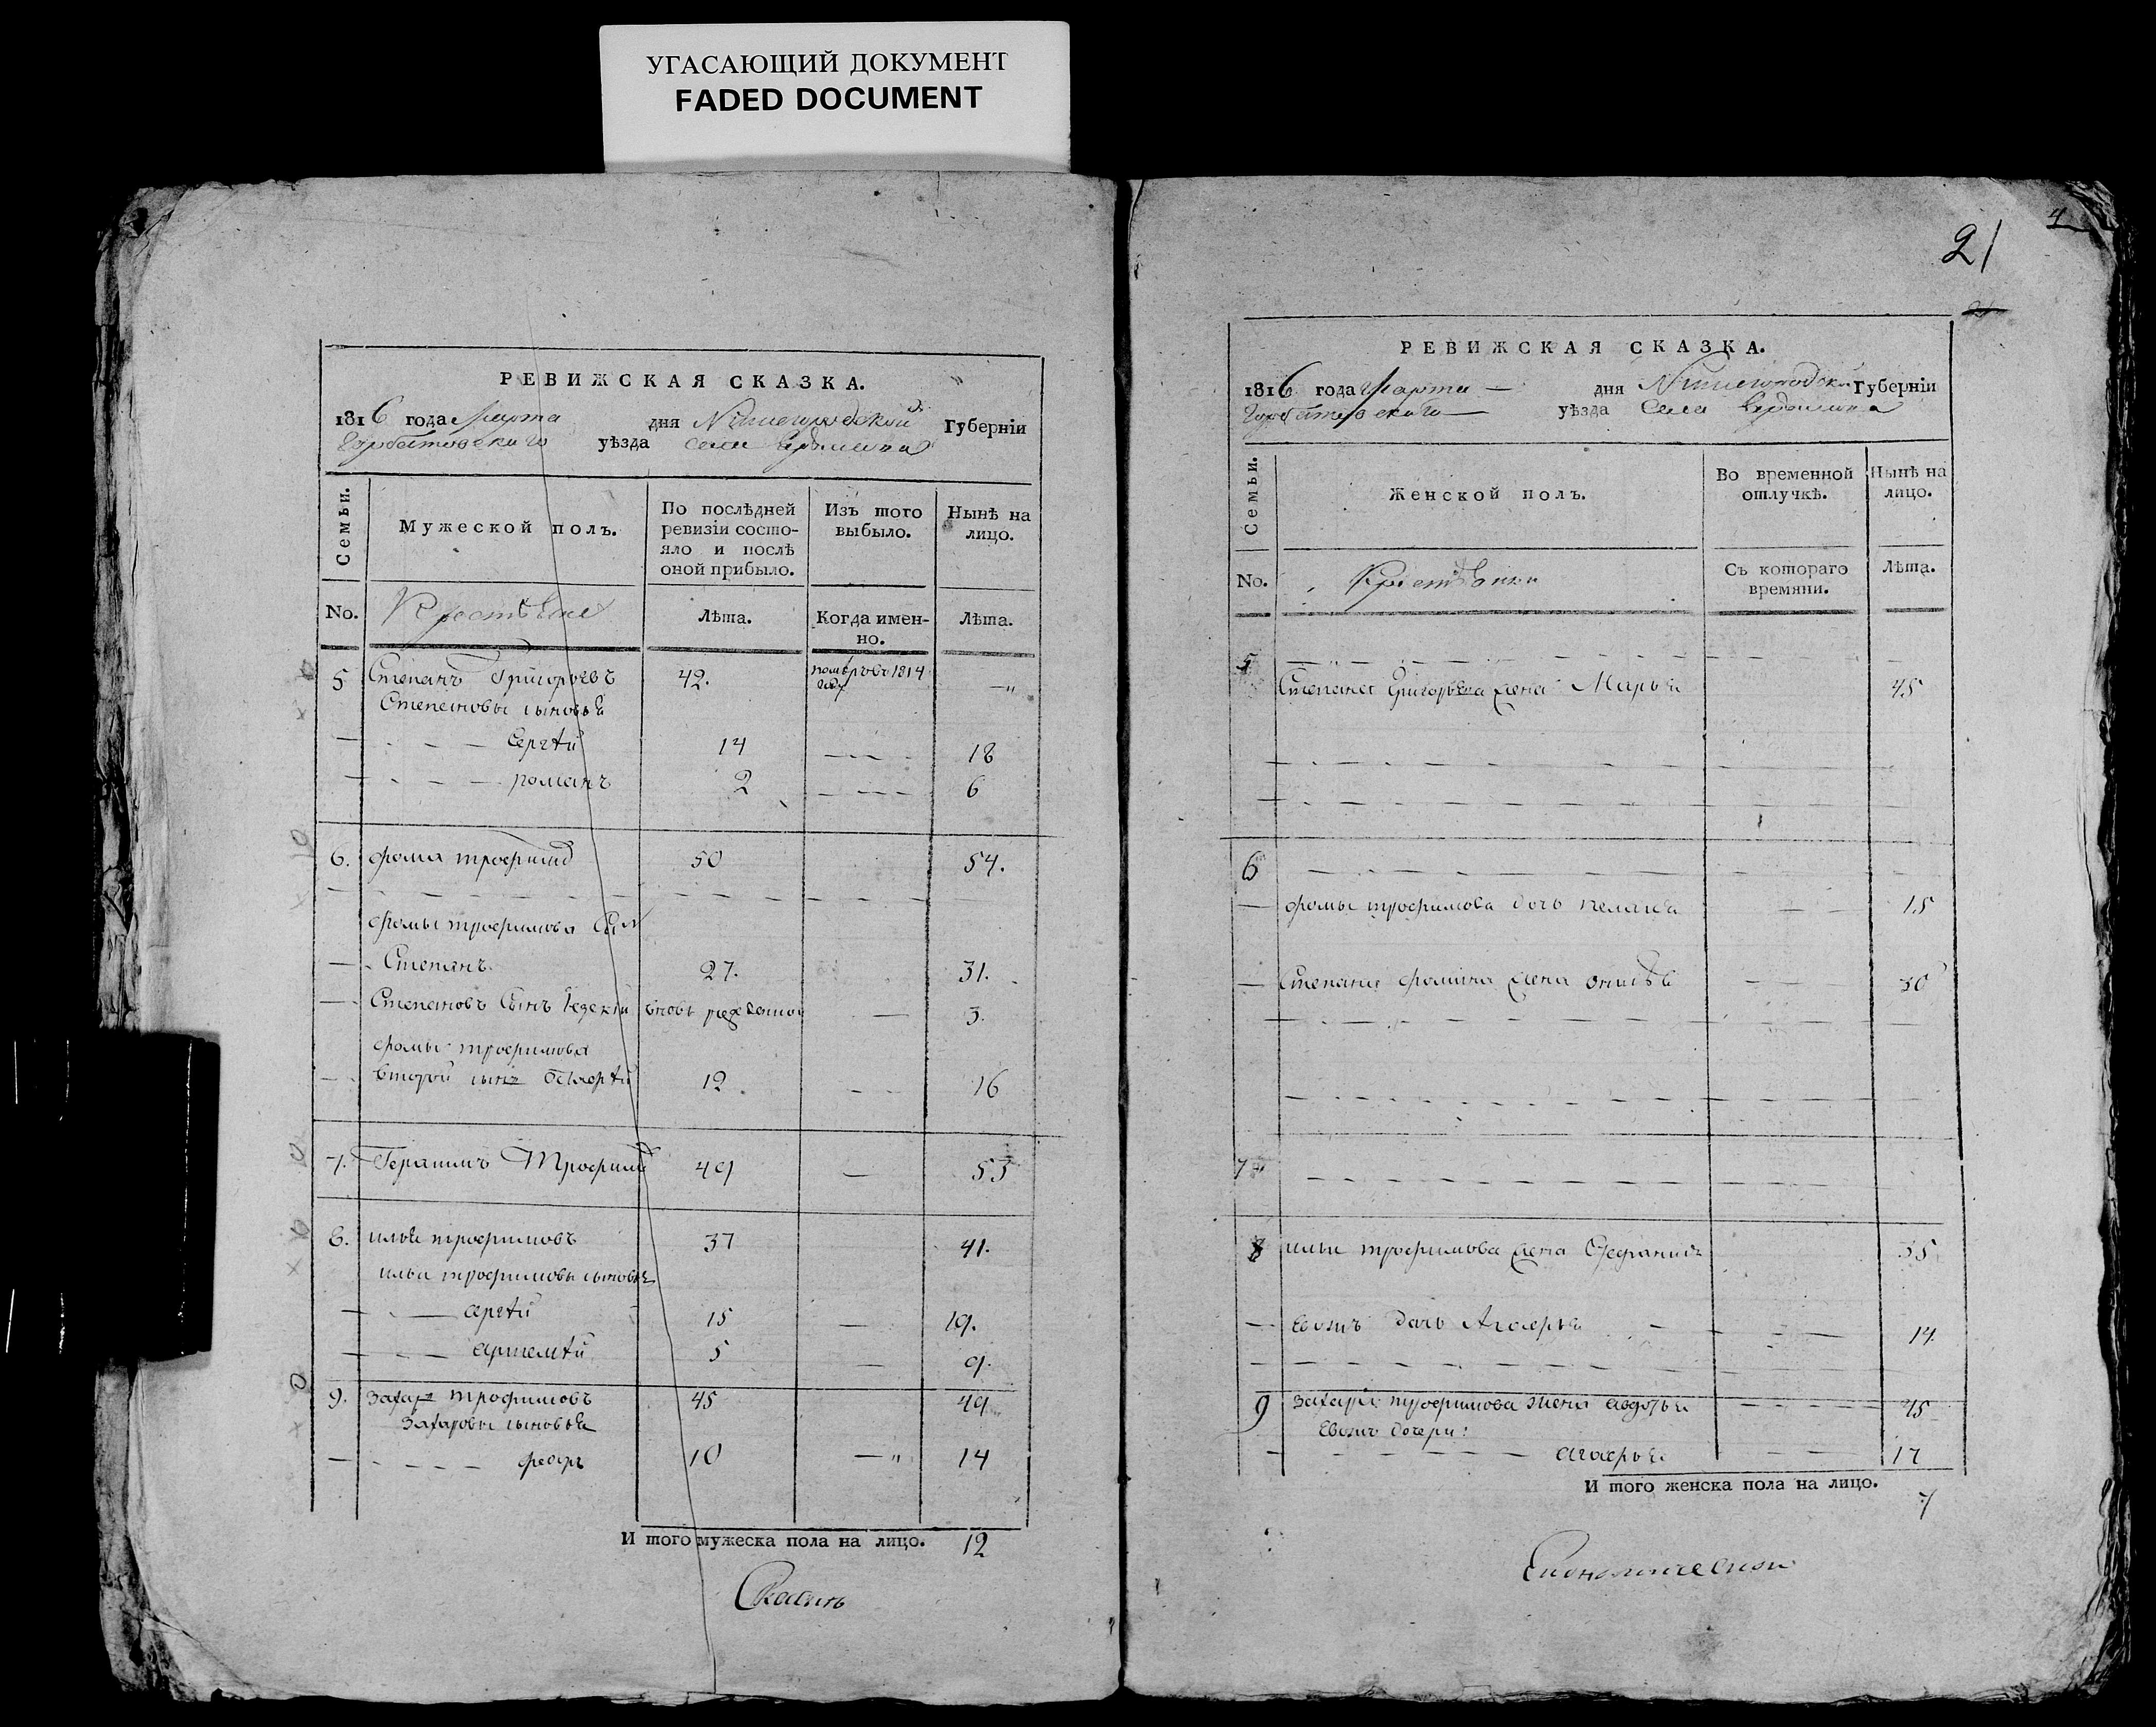 УГАСАЮЩИЙ ДОКУМЕНТ
FADED DOCUMENT
РЕВИЖСКАЯ СКАЗКА.
1816 года Марта дня Нижегородской Губерніи
Горбатовскаго уѣзда села
Семьи.
Мужеской полъ.
По послѣдней ревизіи состояло и послѣ оной прибыло.
Изъ того выбыло.
Нынѣ на лицо.
No.
Лѣта.
Когда именно.
Лѣта.
5 Степанъ Григорьевъ 42. 1814 —„
Степановы сыновья
— Сергѣй 14 18
— романъ 2 6
6. фома трофимо 50 54.
фомы трофимова сын
— Степанъ 27. 31.
— Степановъ Сынъ вновь рожденной — 3.
фомы трофимова
второй сынъ 12 16
7. Герасимъ Трофимо 49 — 53
8. илья трофимовъ 37 41.
ильи трофимовы сыновья
— сергѣй 15 — 19.
— артемѣй 5 — 9.
9. Захаръ трофимовъ 45 49
Захаровы сыновья
— федръ 10 —„ 14
И того мужеска пола на лицо. 12
4
21
РЕВИЖСКАЯ СКАЗКА.
1816 года Марта — дня Нижегородской Губерніи
Горбатовскаго — уѣзда Села
Семьи.
Женской полъ.
Во временной отлучкѣ.
Нынѣ на лицо.
No.
Съ котораго времяни.
Лѣта.
5
Степана Григорьева жена Марья 45
6
— фомы трофимова дочь пелагея 15
— Степана фомина жена 30
7
8 ильи трофимова жена Стефанида 35
— Евожъ дочь Агафья 14
9 Захара трофимова жена авдотья 45
Евожъ дочери:
агафья 17
И того женска пола на лицо.
7